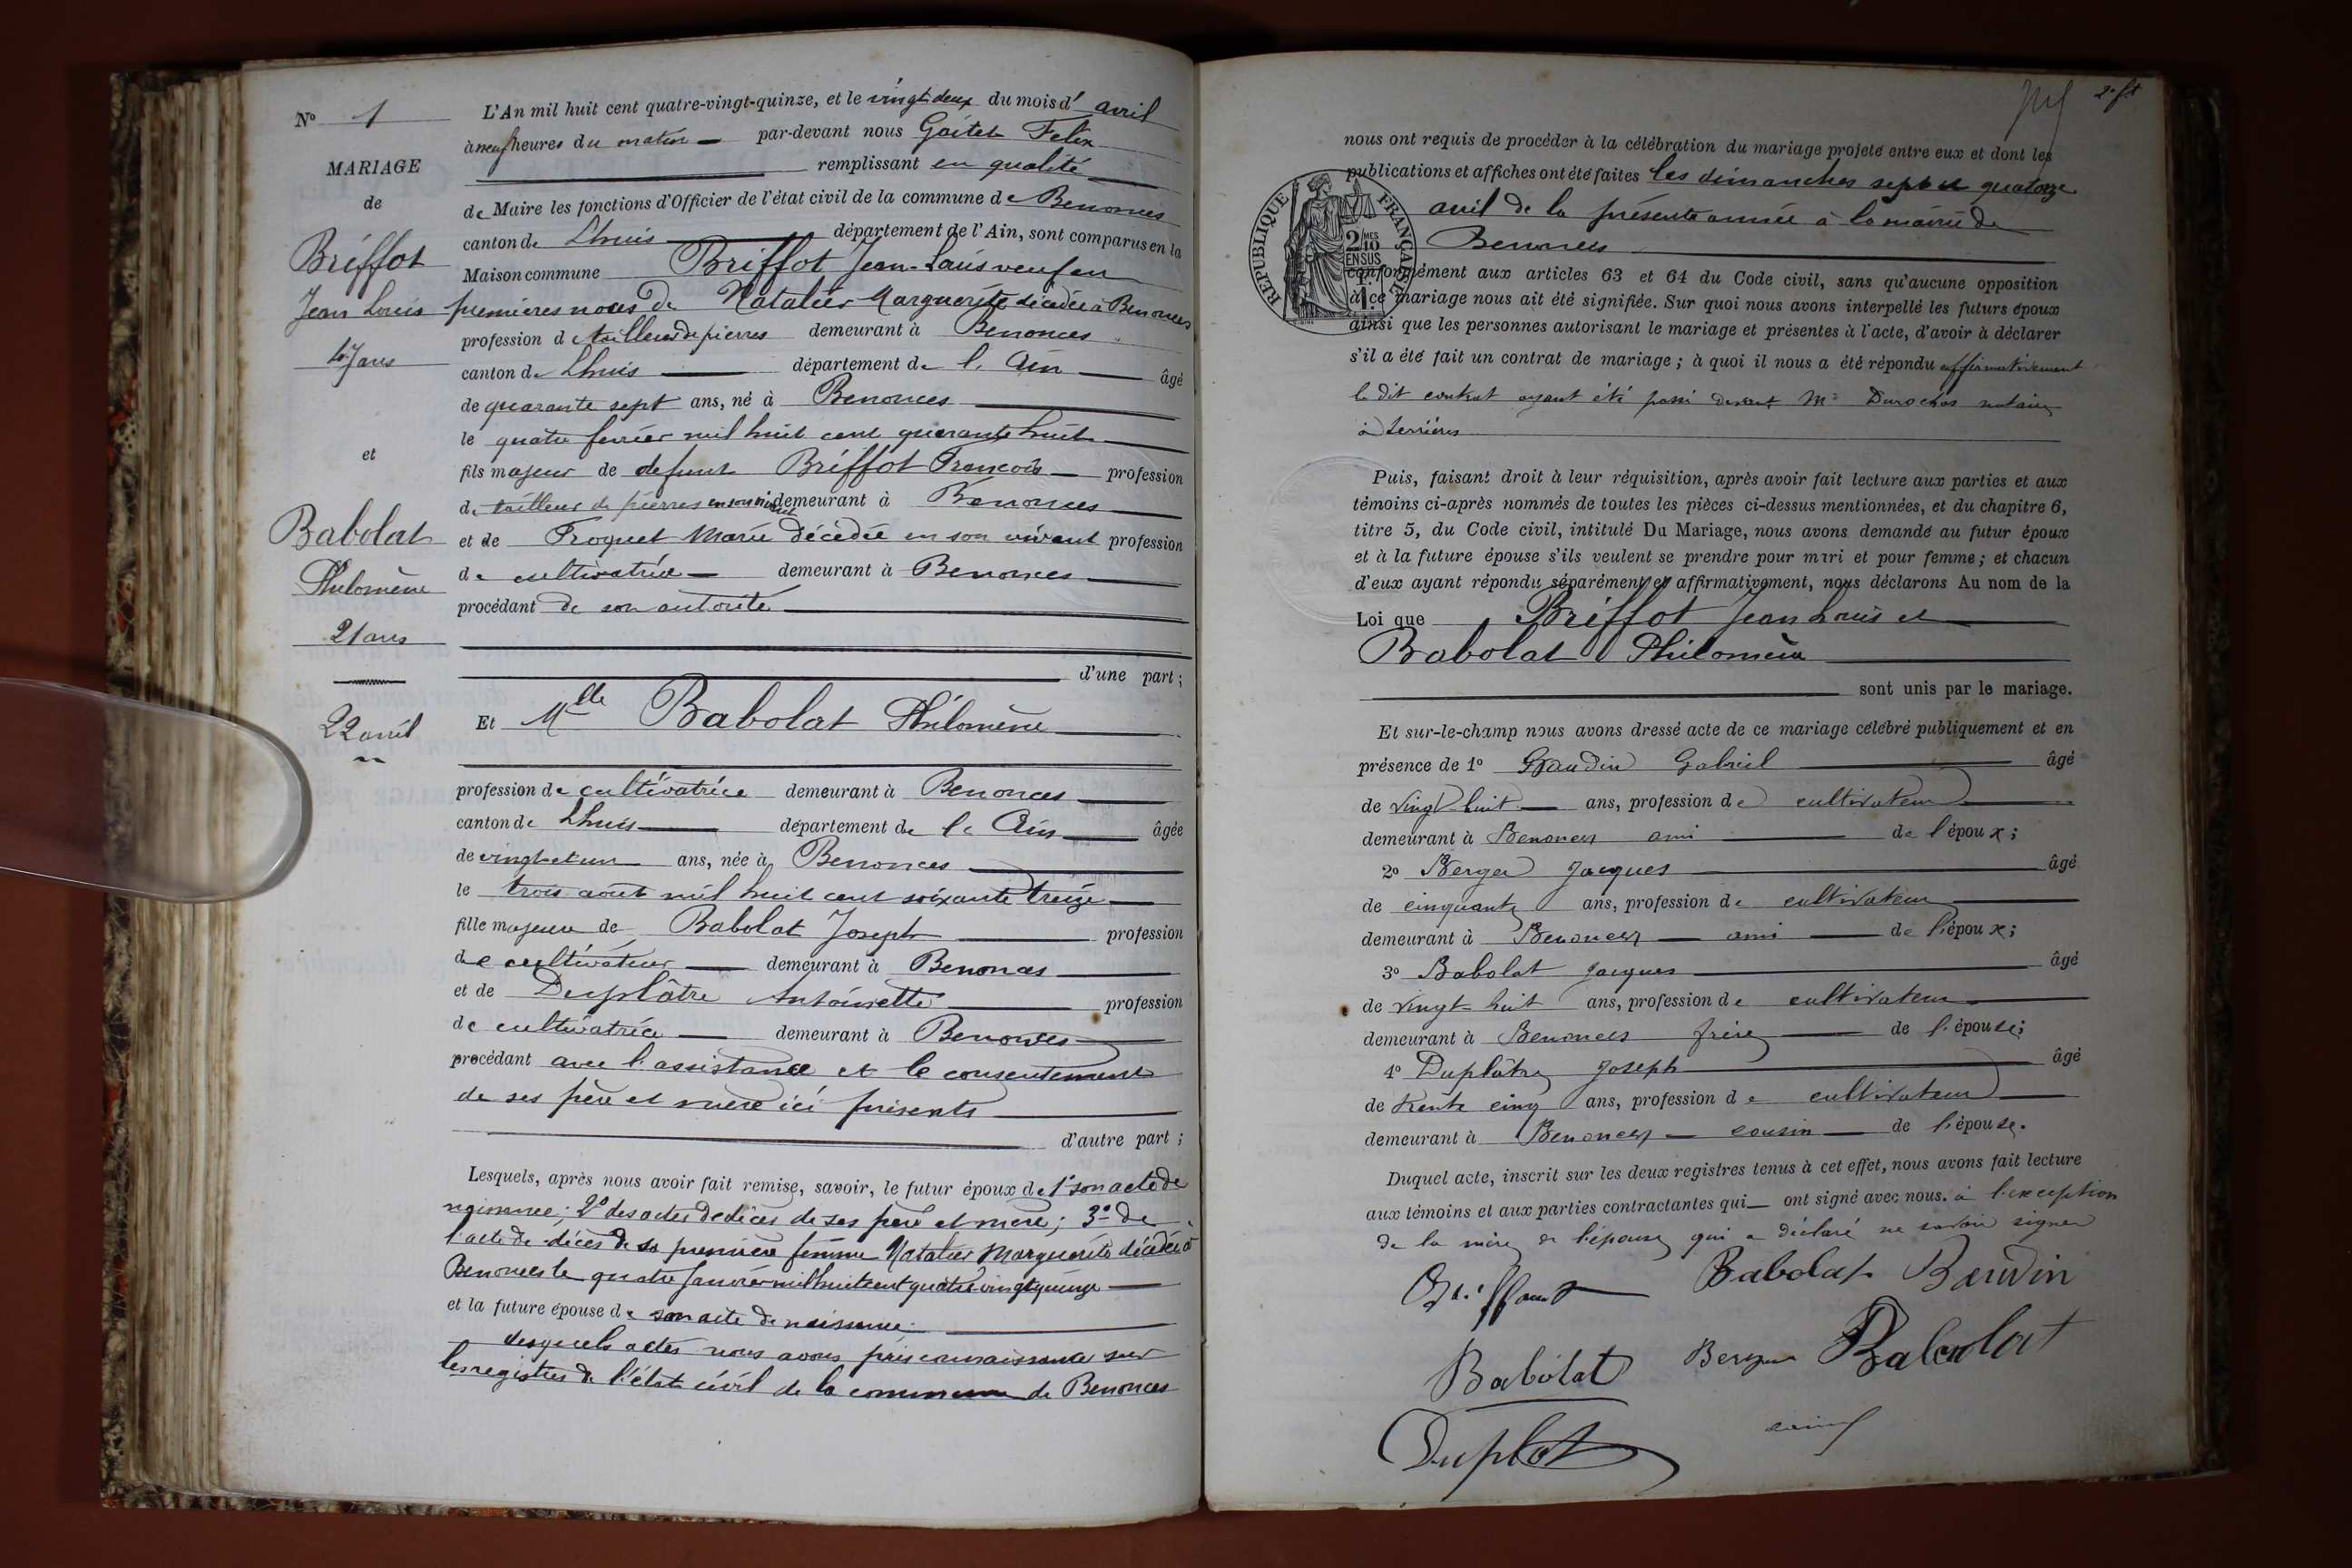 N° 1
MARIAGE
de
Briffot
Jean Louis
47 ans
et
Babolat
Philomène
21 ans
22 avril
L'An mil huit cent quatre-vingt-quinze, et le vingt deux du mois d' avril
à neuf heures du matin par-devant nous Goitet Felix
remplissant en qualité
de Maire les fonctions d'Officier de l'état civil de la commune de Benonces
canton de Lhuis département de l'Ain, sont comparus en la
Maison commune Briffot Jean-Louis veuf en
premières noces de Natalier Marguerite décédée à Benonces
profession de tailleur de pierres demeurant à Benonces
canton de Lhuis département de l'Ain âgé
de quarante sept ans, né à Benonces
le quatre fevrier mil huit cent quarante huit
fils majeur de defunt Briffot Francois profession
de tailleur de pierres en son vivant demeurant à Benonces
et de Froquet Marie décédée en son vivant profession
de cultivatrice demeurant à Benonces
procédant de son autorité
d'une part ;
Et Mlle Babolat Philomène
profession de cultivatrice demeurant à Benonces
canton de Lhuis département de l'Ain âgée
de vingt et un ans, née à Benonces
le trois août mil huit cent soixante treize
fille majeure de Babolat Joseph profession
de cultivateur demeurant à Benonces
et de Duplâtre Antoinette profession
de cultivatrice demeurant à Benonces
procédant avec l'assistance et le consentement
de ses père et mère ici présents
d'autre part ;
Lesquels, après nous avoir fait remise, savoir, le futur époux de 1° son acte de
naissance; 2° des actes de décès de ses père et mère; 3° de
l'acte de décès de sa première femme Natalier Marguerite décédée à
Benonces le quatre janvier mil huit cent quatre vingt quinze
et la future épouse de son acte de naissance.
desquels actes nous avons pris connaissance sur
les registres de l'état civil de la commune de Benonces
2e ft
nous ont requis de procéder à la célébration du mariage projeté entre eux et dont les
publications et affiches ont été faites les dimanches sept et quatorze
avril de la présente année à la mairie de
Benonces
RÉPUBLIQUE FRANÇAISE
2/10 MES
EN SUS
1F.
conformément aux articles 63 et 64 du Code civil, sans qu'aucune opposition
à ce mariage nous ait été signifiée. Sur quoi nous avons interpellé les futurs époux
ainsi que les personnes autorisant le mariage et présentes à l'acte, d'avoir à déclarer
s'il a été fait un contrat de mariage ; à quoi il nous a été répondu affirmativement
le dit contrat ayant été passé devant Me Durochas notaire
à Serrières
Puis, faisant droit à leur réquisition, après avoir fait lecture aux parties et aux
témoins ci-après nommés de toutes les pièces ci-dessus mentionnées, et du chapitre 6,
titre 5, du Code civil, intitulé Du Mariage, nous avons demandé au futur époux
et à la future épouse s'ils veulent se prendre pour mari et pour femme ; et chacun
d'eux ayant répondu séparément et affirmativement, nous déclarons Au nom de la
Loi que Briffot Jean Louis et
Babolat Philomène
sont unis par le mariage.
Et sur-le-champ nous avons dressé acte de ce mariage célébré publiquement et en
présence de 1° Gabriel âgé
de vingt huit ans, profession de cultivateur
demeurant à Benonces ami de l'époux ;
2° Berger Jacques âgé
de cinquante ans, profession de cultivateur
demeurant à Benonces ami de l'époux ;
3° Babolat Jacques âgé
de vingt huit ans, profession de cultivateur
demeurant à Benonces frère de l'épouse ;
4° Duplâtre Joseph âgé
de trente cinq ans, profession de cultivateur
demeurant à Benonces cousin de l'épouse.
Duquel acte, inscrit sur les deux registres tenus à cet effet, nous avons fait lecture
aux témoins et aux parties contractantes qui ont signé avec nous. à l'exception
de la mère de l'épouse qui a déclaré ne savoir signer
Babolat Baudin
Babolat Berger Babolat
Duplat